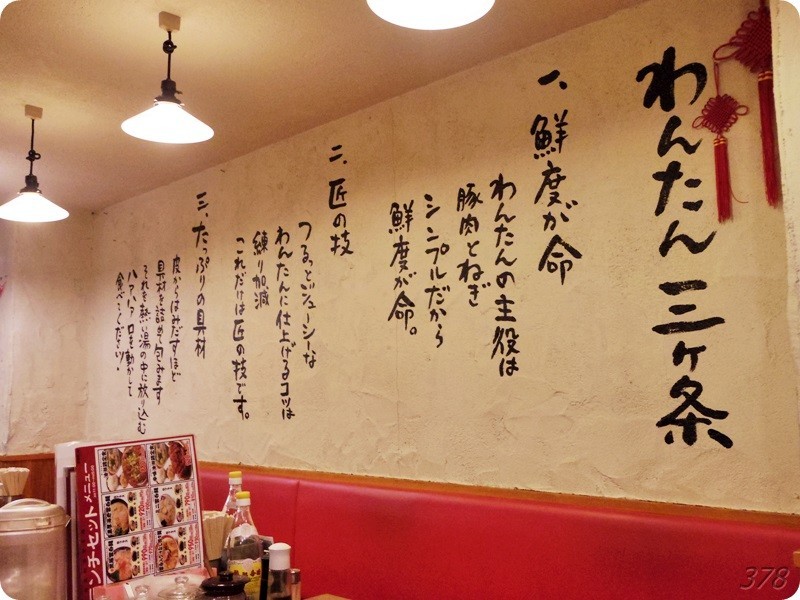 わんたん三ヶ条
一、鮮度が命
わんたんの主役は
豚肉とねぎ
シンプルだから
鮮度が命。
二、匠の技
つるっとジューシーな
わんたんに仕上げるコツは
練り加減
これだけは匠の技です。
三、たっぷりの具材
皮からはみだすほど
具材を詰めて包みます
それを熱い湯の中に放り込む
ハァハァ口を動かして
食べてください。
ンチセットメニュー
378